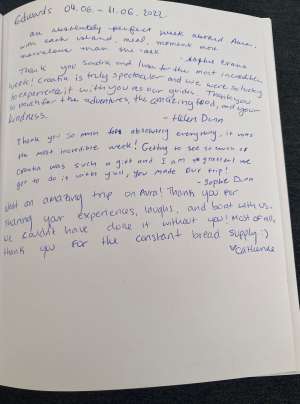 Edwards 04.06. - 11.06.2022
an absolutely perfect week aboard Aura,
with each island, meal, moment more
marvelous than the last
- Sophie Evans
Thank you Sandra and Ivan for the most incredible
week! Croatia is truly spectacular and we were so lucky
to experience it with you as our guide. Thank you
so much for the adventures, the amazing food, and your
kindness.
- Helen Dunn
Thank you so much for absolutely everything, it was
the most incredible week! Getting to see so much of
Croatia was such a gift and I am so grateful we
got to do it with y'all, you made our trip!
- Sophie Dunn
What an amazing trip on Aura! Thank you for
sharing your experiences, laughs, and boat with us.
We couldn't have done it without you! Most of all,
thank you for the constant bread supply :)
Catherine